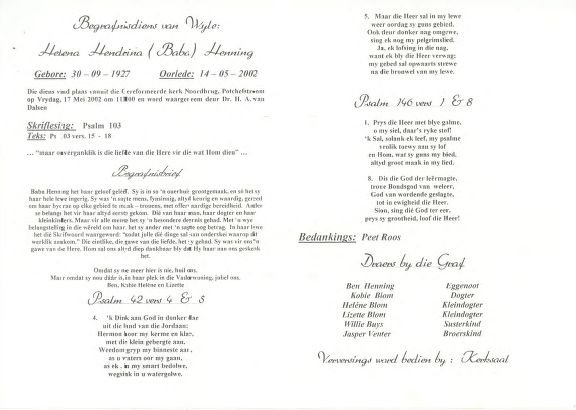 Begrafnisdiens van Wyle:
Helena Hendrina (Baba) Henning
Gebore: 30 – 09 – 1927 Oorlede: 14 – 05 – 2002
Die diens vind plaas vanuit die Gereformeerde kerk Noordbrug, Potchefstroom
op Vrydag, 17 Mei 2002 om 11H00 en word waargeneem deur Dr. H. A. van
Dalsen
Skriflesing: Psalm 103
Teks: Ps 103 vers. 15 - 18
… “maar onverganklik is die liefde van die Here vir die wat Hom dien” …
Begrafnisbrief
Baba Henning het haar geloof geleef. Sy is in so 'n ouerhuis grootgemaak, en só het sy
haar hele lewe ingerig. Sy was 'n sagte mens, fynsinnig, altyd keurig en waardig, gereed
om haar bydrae op elke gebied te maak – trouens, met offervaardige bereidheid. Anders
se belange het vir haar altyd eerste gekom. Dié van haar man, haar dogter en haar
kleinkinders. Maar vir alle mense het sy 'n besondere deernis gehad. Met 'n wye
belangstelling in die wêreld om haar, het sy ander met 'n sagte oog betrag. In haar lewe
het die Skrifwoord waargeword: “sodat julle die dinge sal kan onderskei waarop dit
werklik aankom.” Die eintlike, die gawe van die liefde, het sy gehad. Sy was vir ons 'n
gawe van die Here. Hom sal ons altyd diep dankbaar bly dat Hy haar aan ons geskenk
het.
Omdat sy nie meer hier is nie, huil ons.
Maar omdat sy nou dáár is, in haar plek in die Vaderwoning, jubel ons.
Ben, Kobie Heléne en Lizette
Psalm 42 vers 4 & 5
4. 'k Dink aan God in donker dae
uit die land van die Jordaan;
Hermon hoor my kerme en klae,
met die klein gebergte aan.
Weedom gryp my binneste aan,
as u waters oor my gaan,
as ek, in my smart bedolwe,
wegsink in u watergolwe.
5. Maar die Heer sal in my lewe
weer oordag sy guns gebied.
Ook deur donker nag omgewe,
sing ek nog my pelgrimslied.
Ja, ek lofsing in die nag,
want ek bly die Heer verwag;
my gebed sal opwaarts strewe
na die bronwel van my lewe.
Psalm 146 vers 1 & 8
1. Prys die Heer met blye galme,
o my siel, daar's ryke stof!
'k Sal, solank ek leef, my psalme
vrolik toewy aan sy lof
en Hom, wat sy guns my bied,
altyd groot maak in my lied.
8. Dis die God der leërmagte,
troue Bondsgod van weleer,
God van wordende geslagte,
tot in ewigheid die Heer.
Sion, sing dié God ter eer,
prys sy grootheid, loof die Heer!
Bedankings: Peet Roos
Draers by die Graf
Ben Henning Eggenoot
Kobie Blom Dogter
Heléne Blom Kleindogter
Lizette Blom Kleindogter
Willie Buys Susterkind
Jasper Venter Broerskind
Verversings word bedien by : Kerksaal